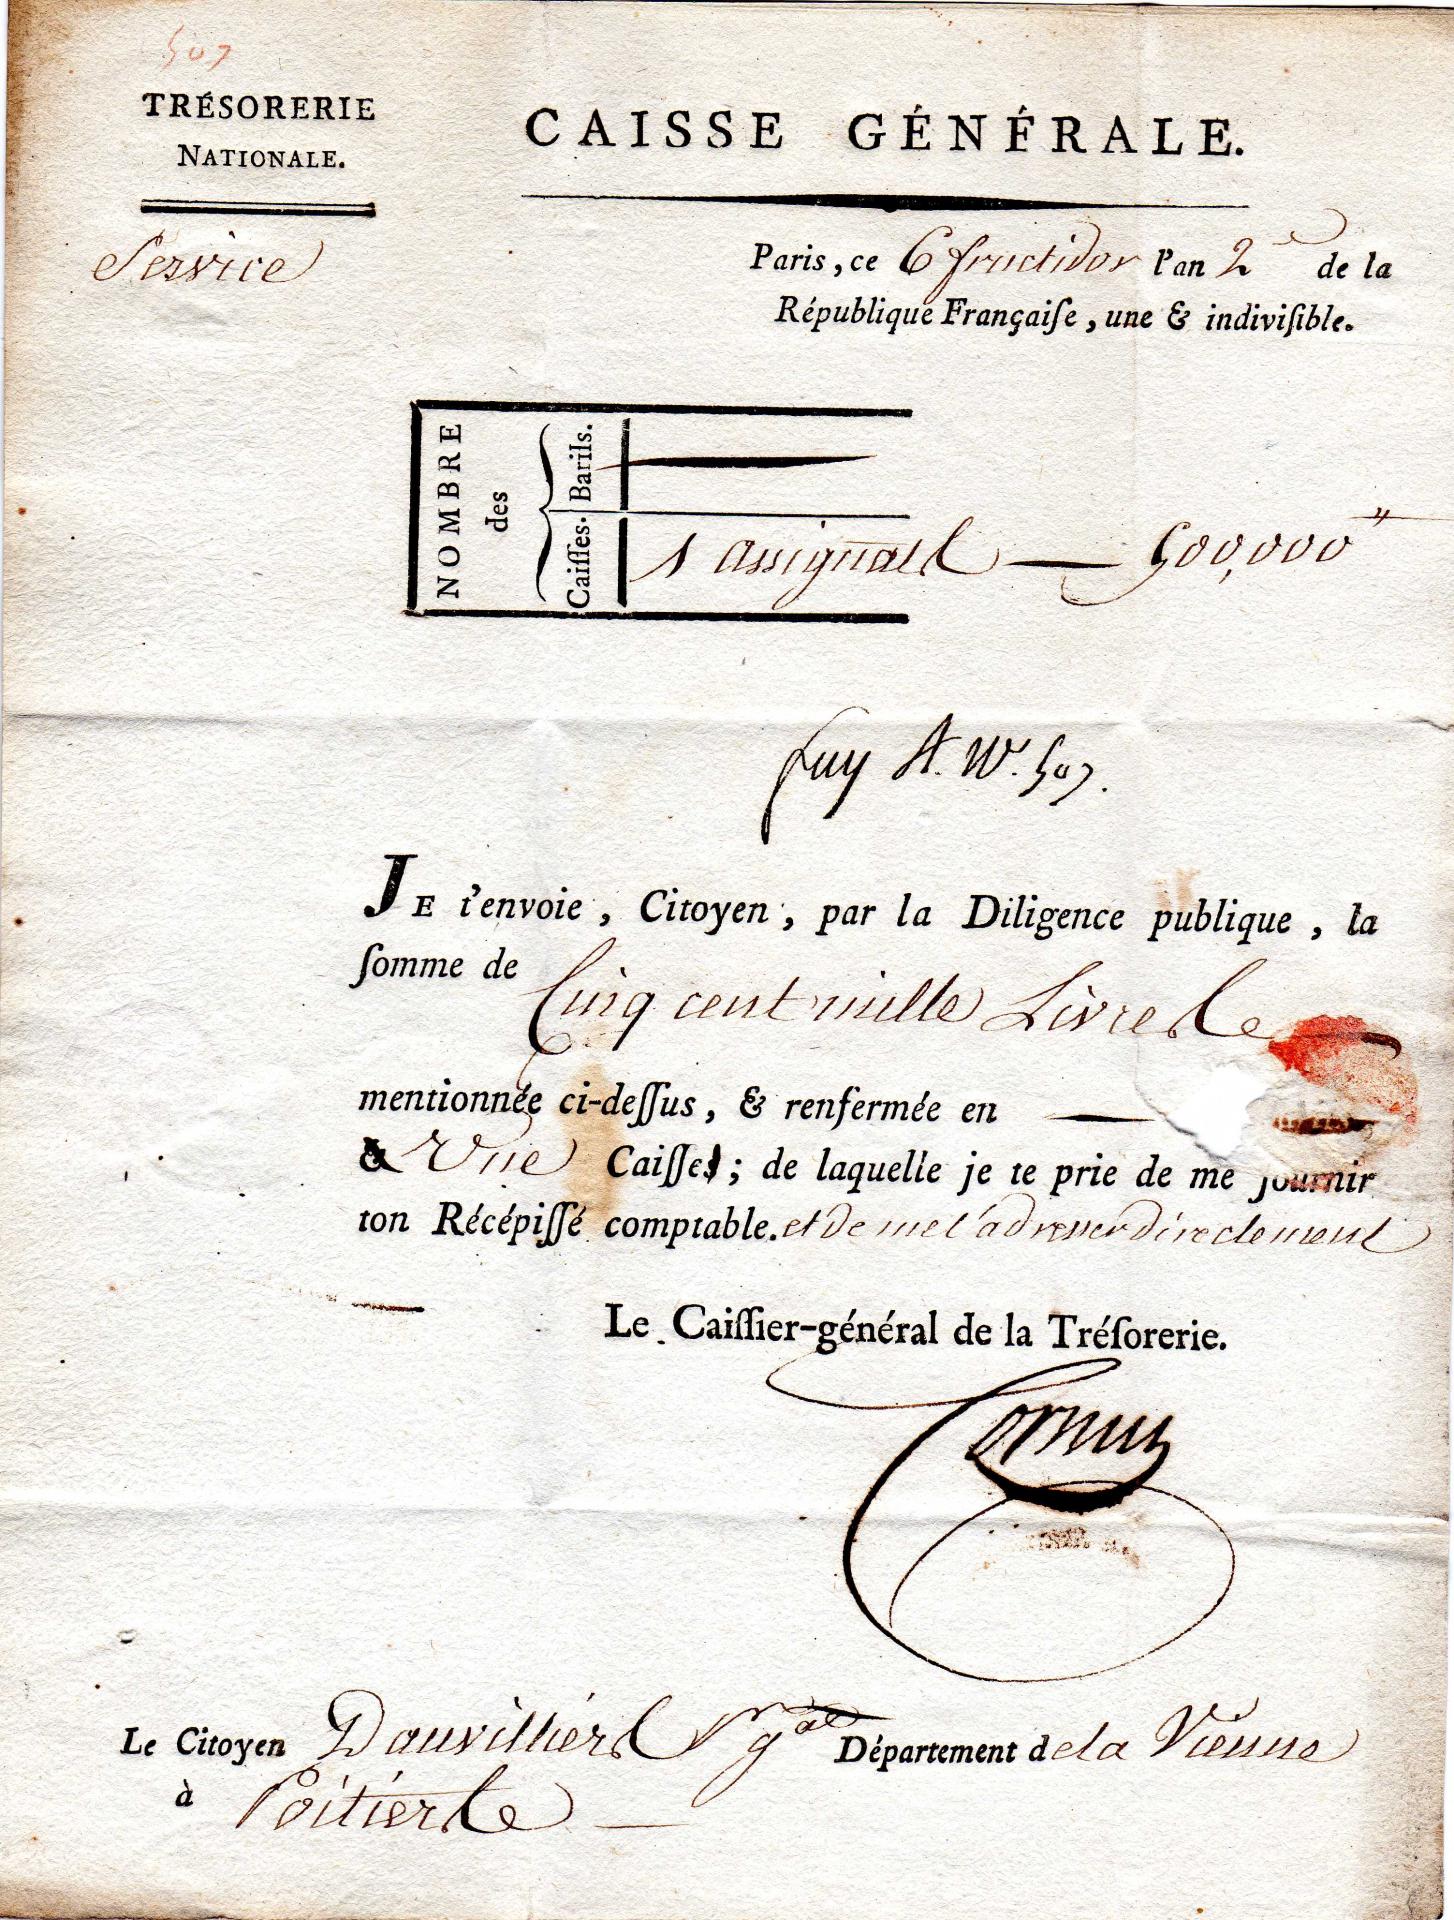 507
TRÉSORERIE
NATIONALE.
CAISSE GÉNÉRALE.
Service
Paris, ce 6 fructidor l'an 2e de la
République Françaiſe, une & indiviſible.
NOMBRE
des
Barils.
Caiſſes. 1 assignats 500,000"
A. W. 507.
JE t'envoie, Citoyen, par la Diligence publique, la
ſomme de Cinq cent mille Livres
mentionnée ci-deſſus, & renfermée en
& Une Caiſſes; de laquelle je te prie de me fournir
ton Récépiſſé comptable. et de me l'adresser directement
Le Caiſſier-général de la Tréſorerie.
Cornu
Le Citoyen Dauvilliers Département de la Vienne
à Poitiers